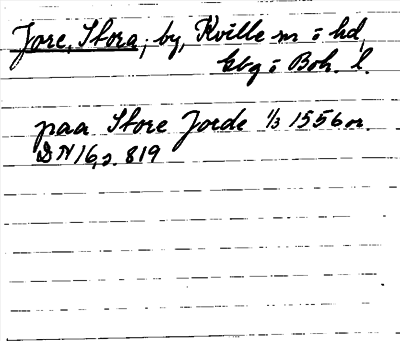 Jore, Stora, by, Kville sn o hd,
Gbg o Boh. l.
paa Store Jorde 1/3 1556 or.
DN 16, s. 819